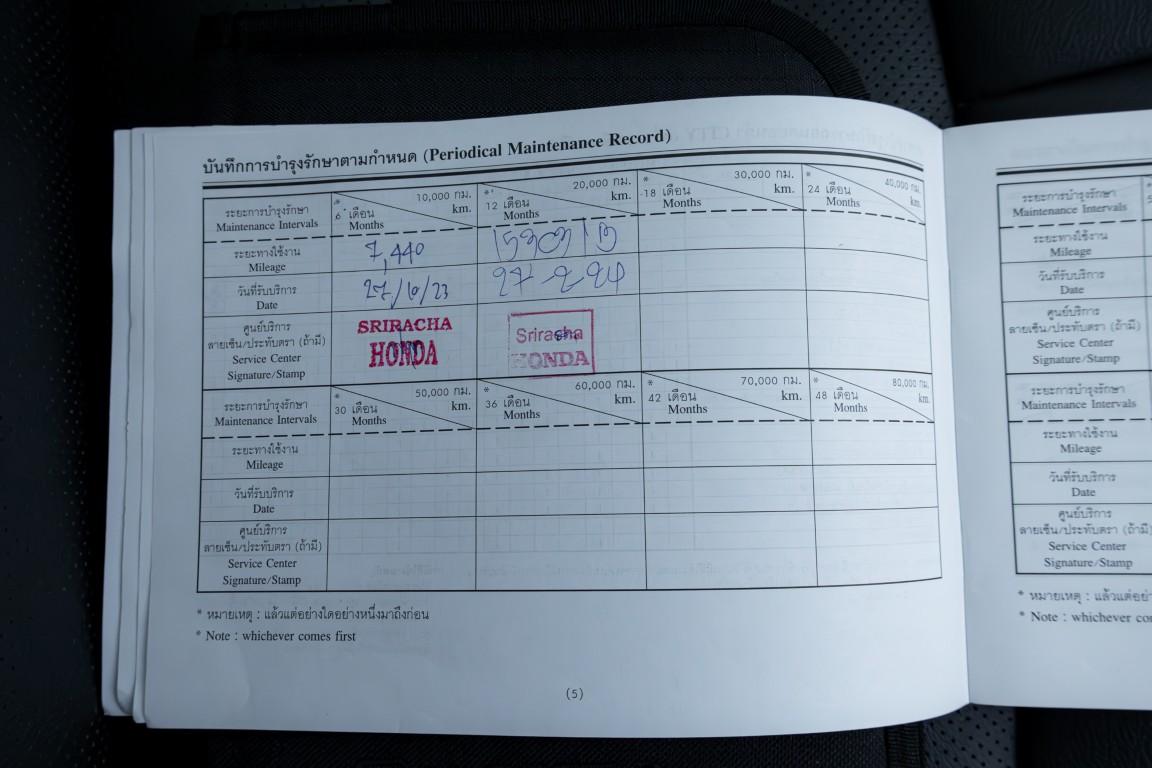 บันทึกการบำรุงรักษาตามกำหนด (Periodical Maintenance Record)
ระยะการบำรุงรักษา
Maintenance Intervals
* 10,000 กม.
6 เดือน km.
Months
* 20,000 กม.
12 เดือน km.
Months
* 30,000 กม.
18 เดือน km.
Months
* 40,000 กม.
24 เดือน km.
Months
ระยะทางใช้งาน
Mileage
7,440
วันที่รับบริการ
Date
27/6/23
ศูนย์บริการ
ลายเซ็น/ประทับตรา (ถ้ามี)
Service Center
Signature/Stamp
SRIRACHA
HONDA
Sriracha
HONDA
ระยะการบำรุงรักษา
Maintenance Intervals
* 50,000 กม.
30 เดือน km.
Months
* 60,000 กม.
36 เดือน km.
Months
* 70,000 กม.
42 เดือน km.
Months
* 80,000 กม.
48 เดือน km.
Months
ระยะทางใช้งาน
Mileage
วันที่รับบริการ
Date
ศูนย์บริการ
ลายเซ็น/ประทับตรา (ถ้ามี)
Service Center
Signature/Stamp
* หมายเหตุ : แล้วแต่อย่างใดอย่างหนึ่งมาถึงก่อน
* Note : whichever comes first
(5)
ระยะการบำรุงรักษา
Maintenance Intervals
ระยะทางใช้งาน
Mileage
วันที่รับบริการ
Date
ศูนย์บริการ
ลายเซ็น/ประทับตรา (ถ้ามี)
Service Center
Signature/Stamp
ระยะการบำรุงรักษา
Maintenance Intervals
ระยะทางใช้งาน
Mileage
วันที่รับบริการ
Date
ศูนย์บริการ
ลายเซ็น/ประทับตรา (ถ้ามี)
Service Center
Signature/Stamp
* หมายเหตุ :
* Note : whichever